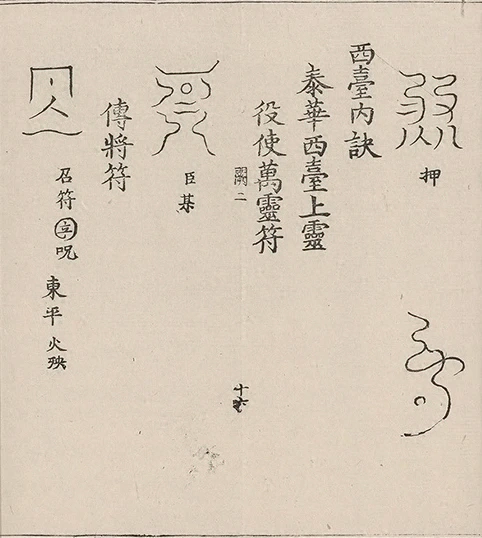 押
西臺內訣
泰華西臺上靈
役使萬靈符
十六
臣某
傳將符
召符 字 呪 東平火殃